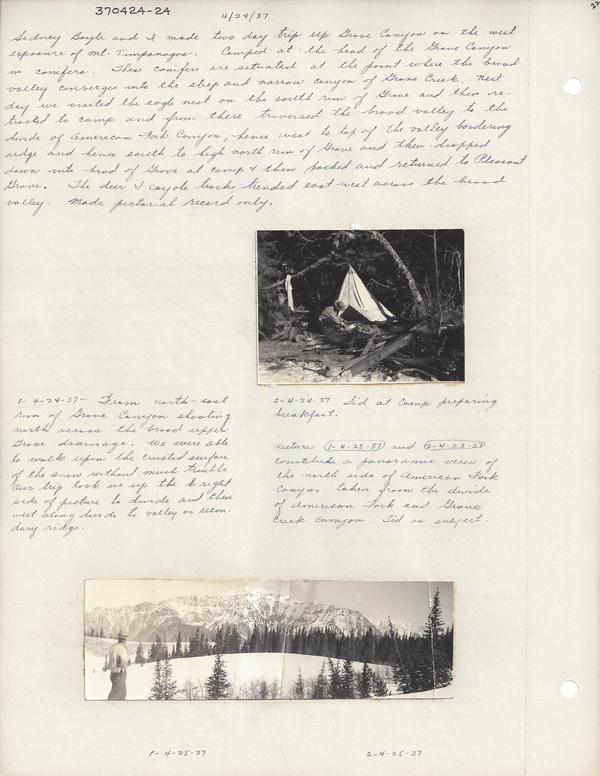 370424-24
4/24/37
Sidney Boyle and I made two day trip up Grove Canyon on the west
exposure of Mt. Timpanogos. Camped at the head of the Grove Canyon
in conifers. These conifers are situated at the point where the broad
valley converges into the steep and narrow canyon of Grove Creek. Next
day we visited the eagle nest on the south rim of Grove and then re-
tracked to camp and from there traversed the broad valley to the
divide of American Fork Canyon, hence west to top of the valley bordering
ridge and hence south to high north rim of Grove and then dropped
down into head of Grove at camp & then packed and returned to Pleasant
Grove. The deer & coyote tracks trended east-west across the broad
valley. Made pictorial record only.
1-4-24-37- From north-east
rim of Grove Canyon shooting
north across the broad upper
Grove drainage. We were able
to walk upon the crusted surface
of the snow without much trouble
Our trip took us up the right
side of picture to divide and then
west along divide to valley or secon-
dary ridge.
2-4-24-37 Sid at Camp preparing
breakfast.
Pictures 1-4-25-37 and 2-4-25-37
constitute a panoramic view of
the north side of American Fork
Canyon taken from the divide
of American Fork and Grove
Creek Canyon. Sid as subject.
1-4-25-37
2-4-25-37